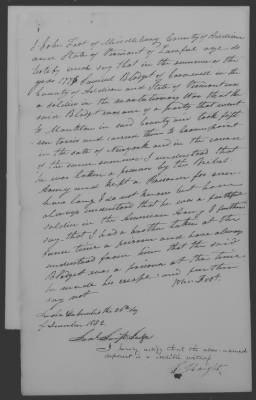 I John Foot of Middlebury County of Addison
and State of Vermont of Lawful age do
testify and say that in the summer of the
year 177 Samuel Blodget of Cornwall in the
County of Addison and State of Vermont was
a soldier in the revolutionary War that the
said Blodget was one of a party that went
to Monkton in said County and took fifth
teen tories and carried them to
in the State of Newyork and in the course
of the same summer I understood that
he was taken a prisoner by the British
Army and kept a Prisoner for some
how long I do not know but have
always understood that he was a faithful
soldier in the American Army I further
say that I had a brother taken at the
same time a prisoner and have always
understood from him that the said
Blodget was a prisoner at the time
he made his escape and further
say not
John Foot.
Sworn &subscribed the 26th day
of December 1832
Saml Swift Judge
I hereby certify that the above named
deponent is a credible witness
S. Swift